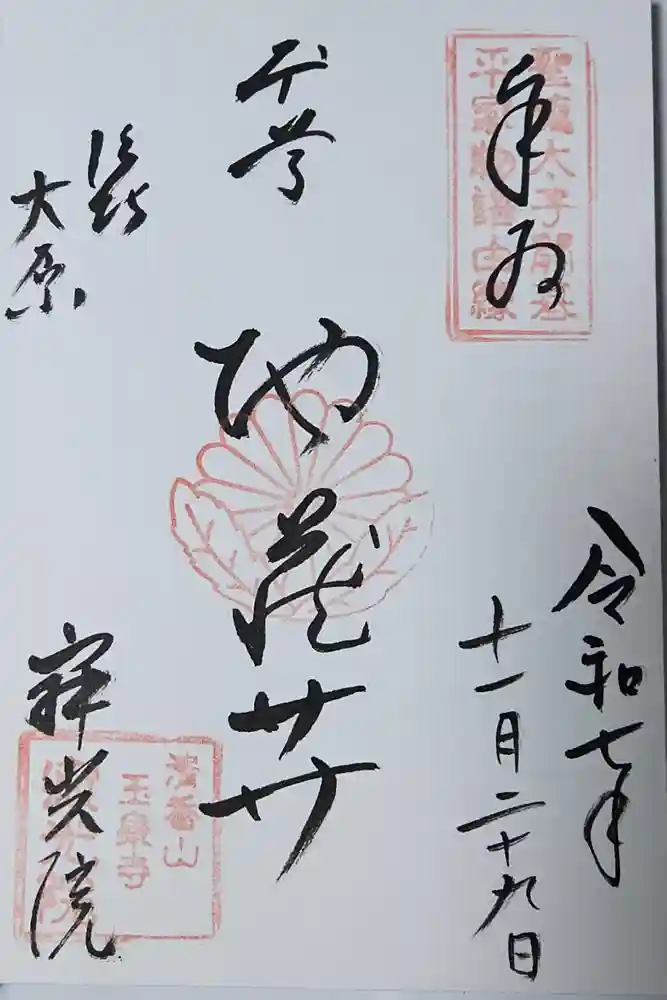 奉拝
聖徳太子開基
平家物語由縁
令和七年
十一月二十九日
本尊
地蔵𦬇
洛北
大原
寂光院
清香山
玉泉寺
寂光院